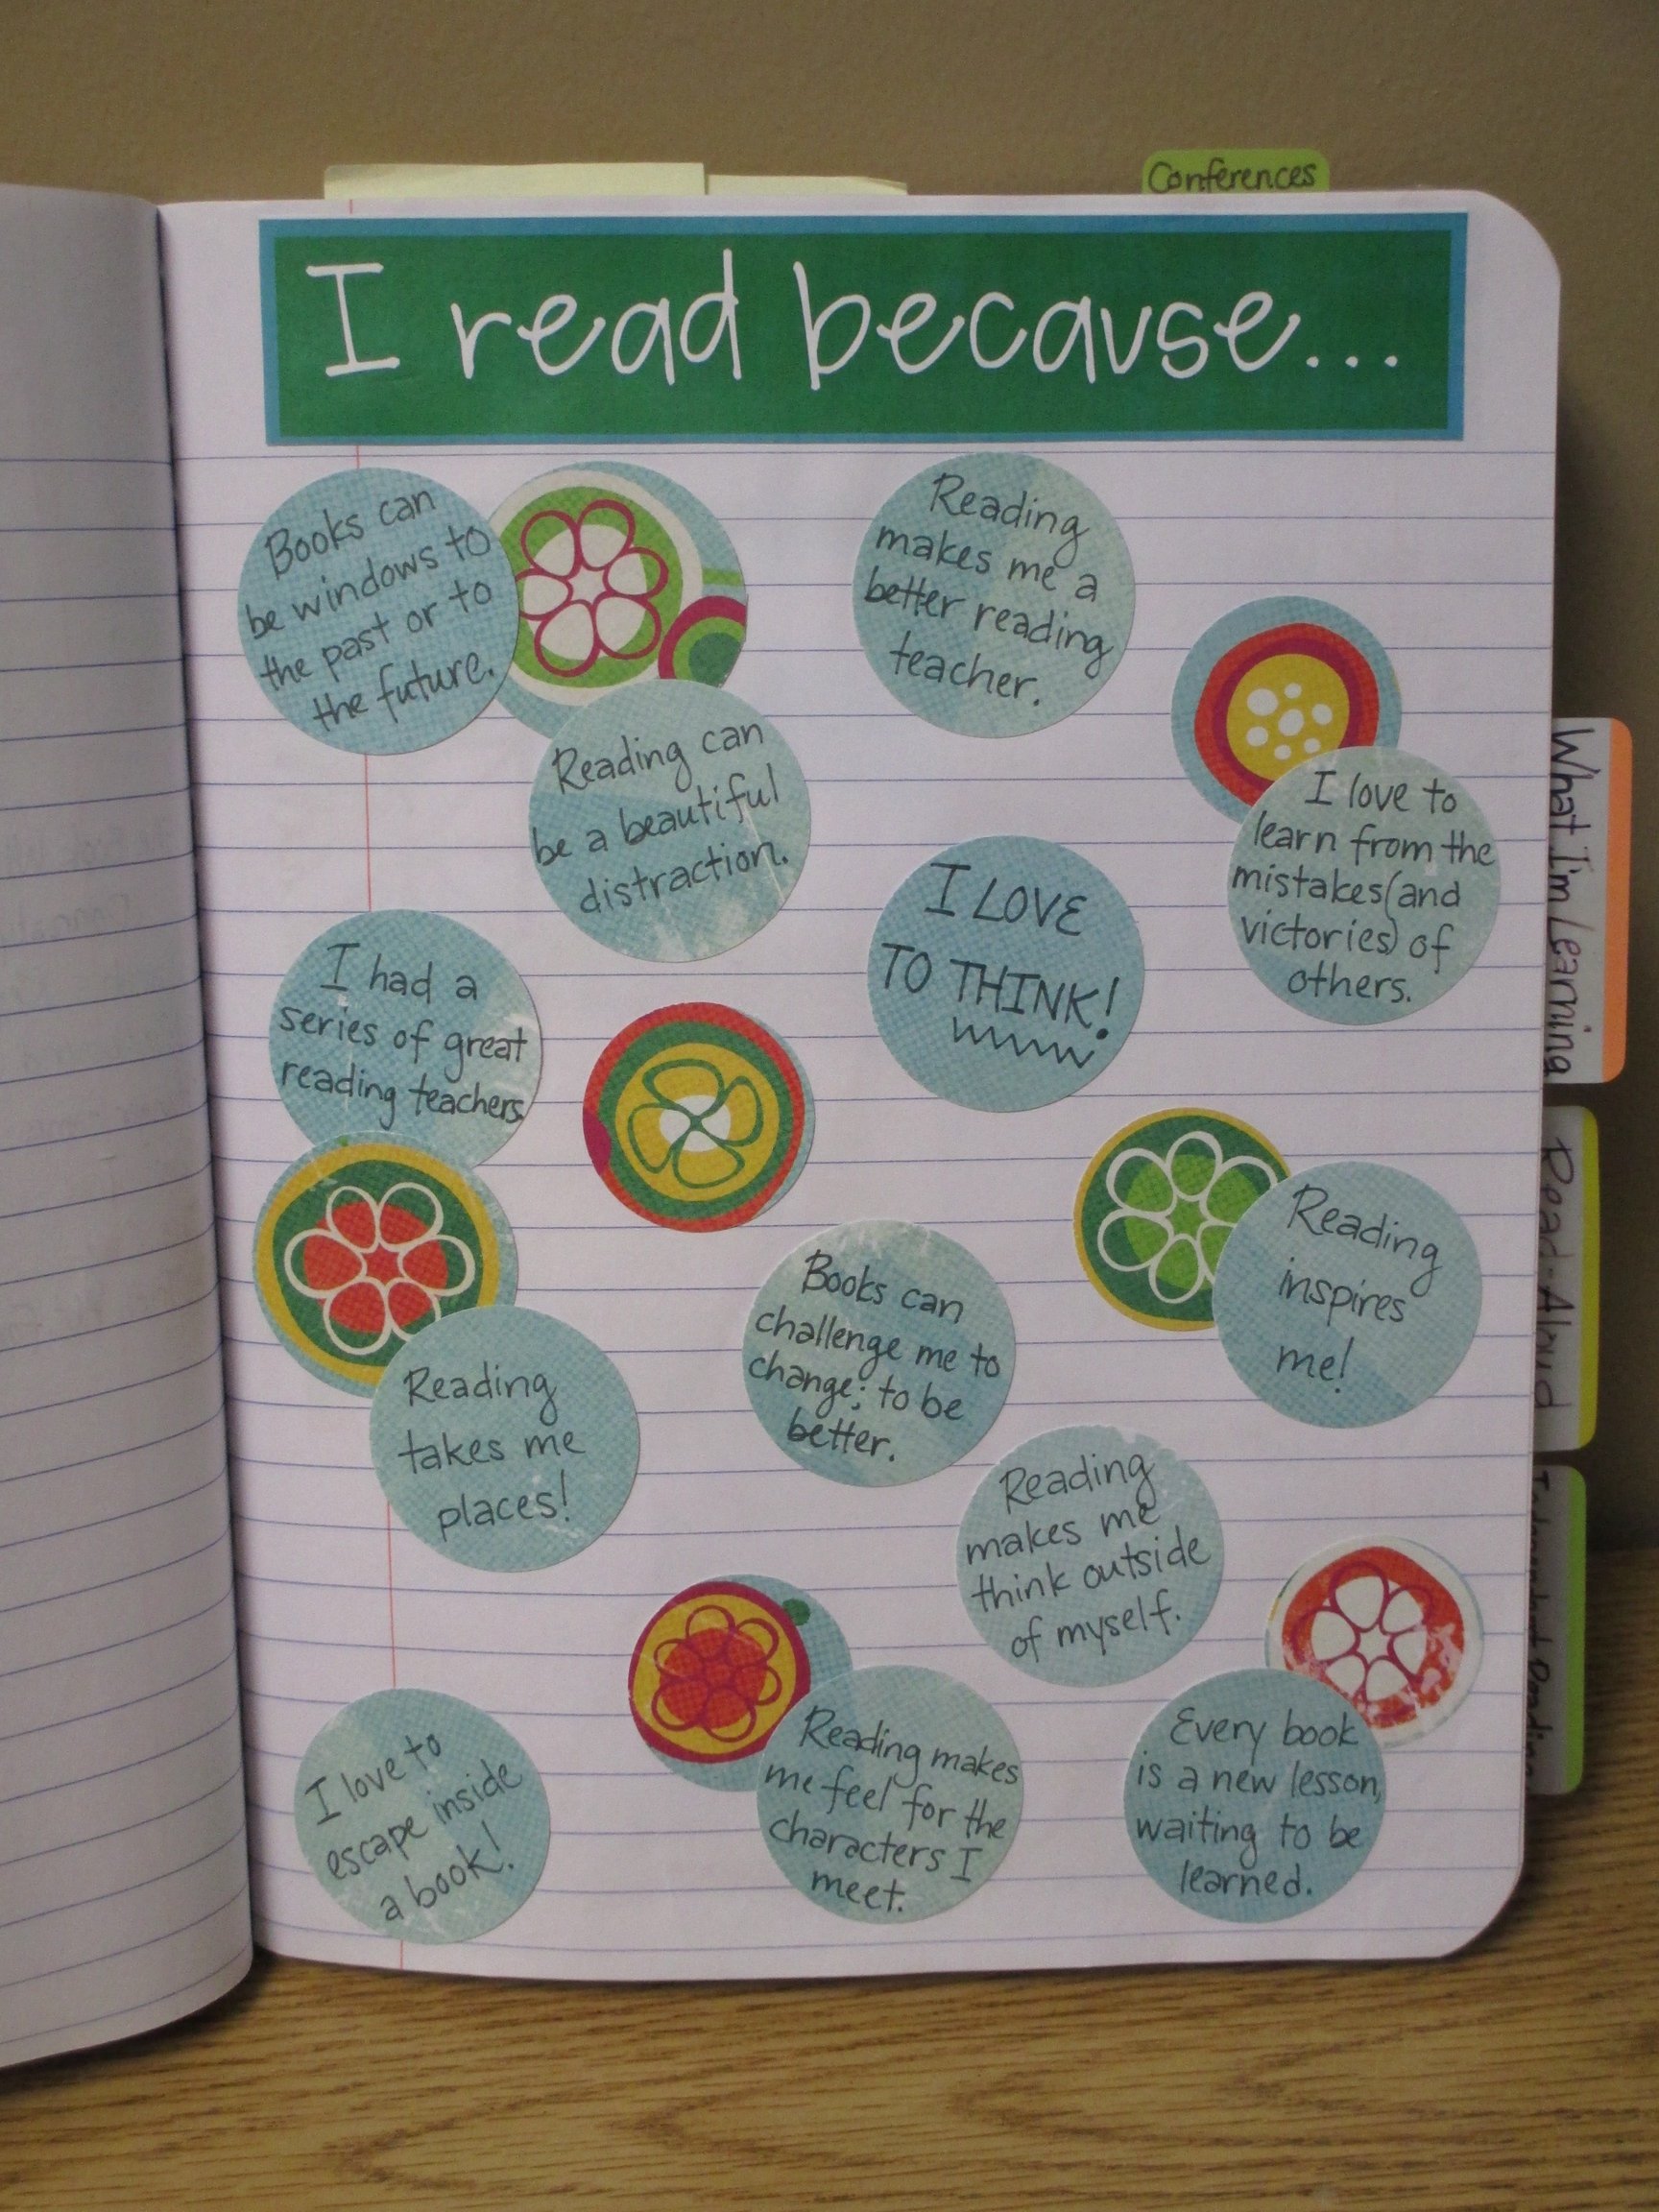 Conferences
I read because...
Books can
be windows to
the past or to
the future.
Reading
makes me a
better reading
teacher.
Reading can
be a beautiful
distraction.
I love to
learn from the
mistakes (and
victories) of
others.
I LOVE
TO THINK!
I had a
series of great
reading teachers.
Reading
inspires
me!
Books can
challenge me to
change; to be
better.
Reading
takes me
places!
Reading
makes me
think outside
of myself.
I love to
escape inside
a book!
Reading makes
me feel for the
characters I
meet.
Every book
is a new lesson,
waiting to be
learned.
What I'm Learning
Read-Aloud
Reading